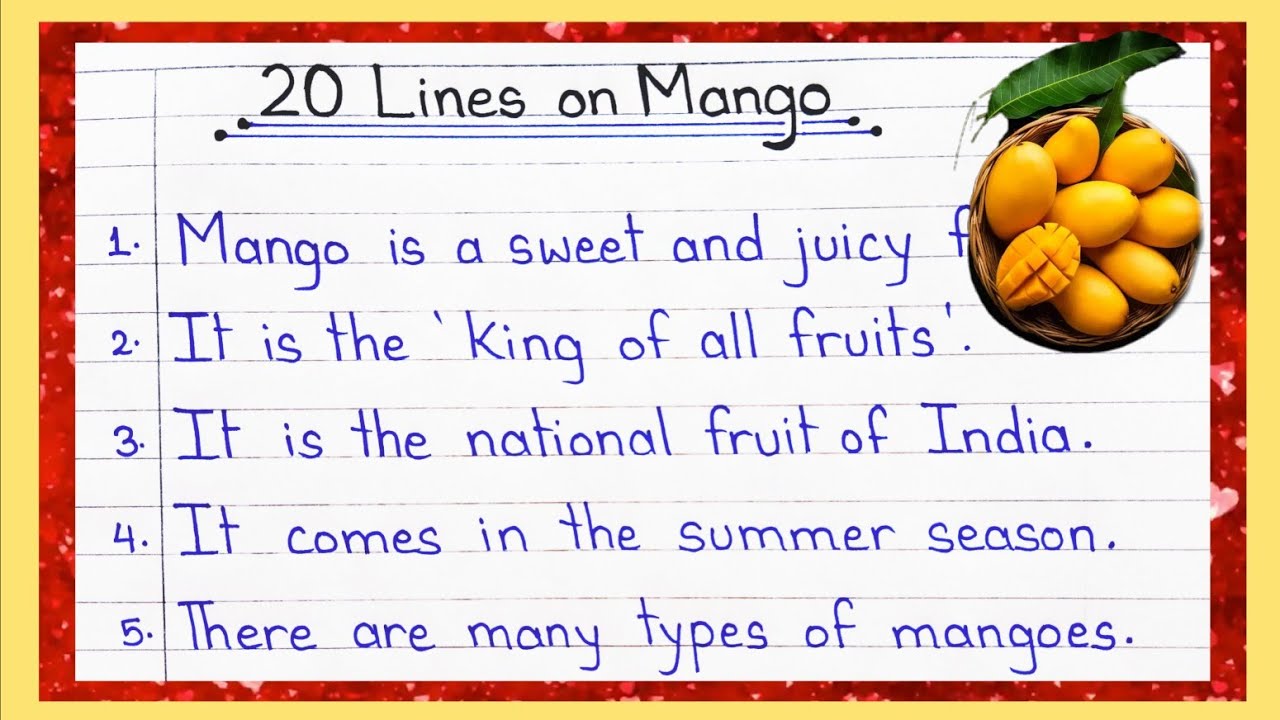 20 Lines on Mango
1. Mango is a sweet and juicy
2. It is the 'king of all fruits'.
3. It is the national fruit of India.
4. It comes in the summer season.
5. There are many types of mangoes.